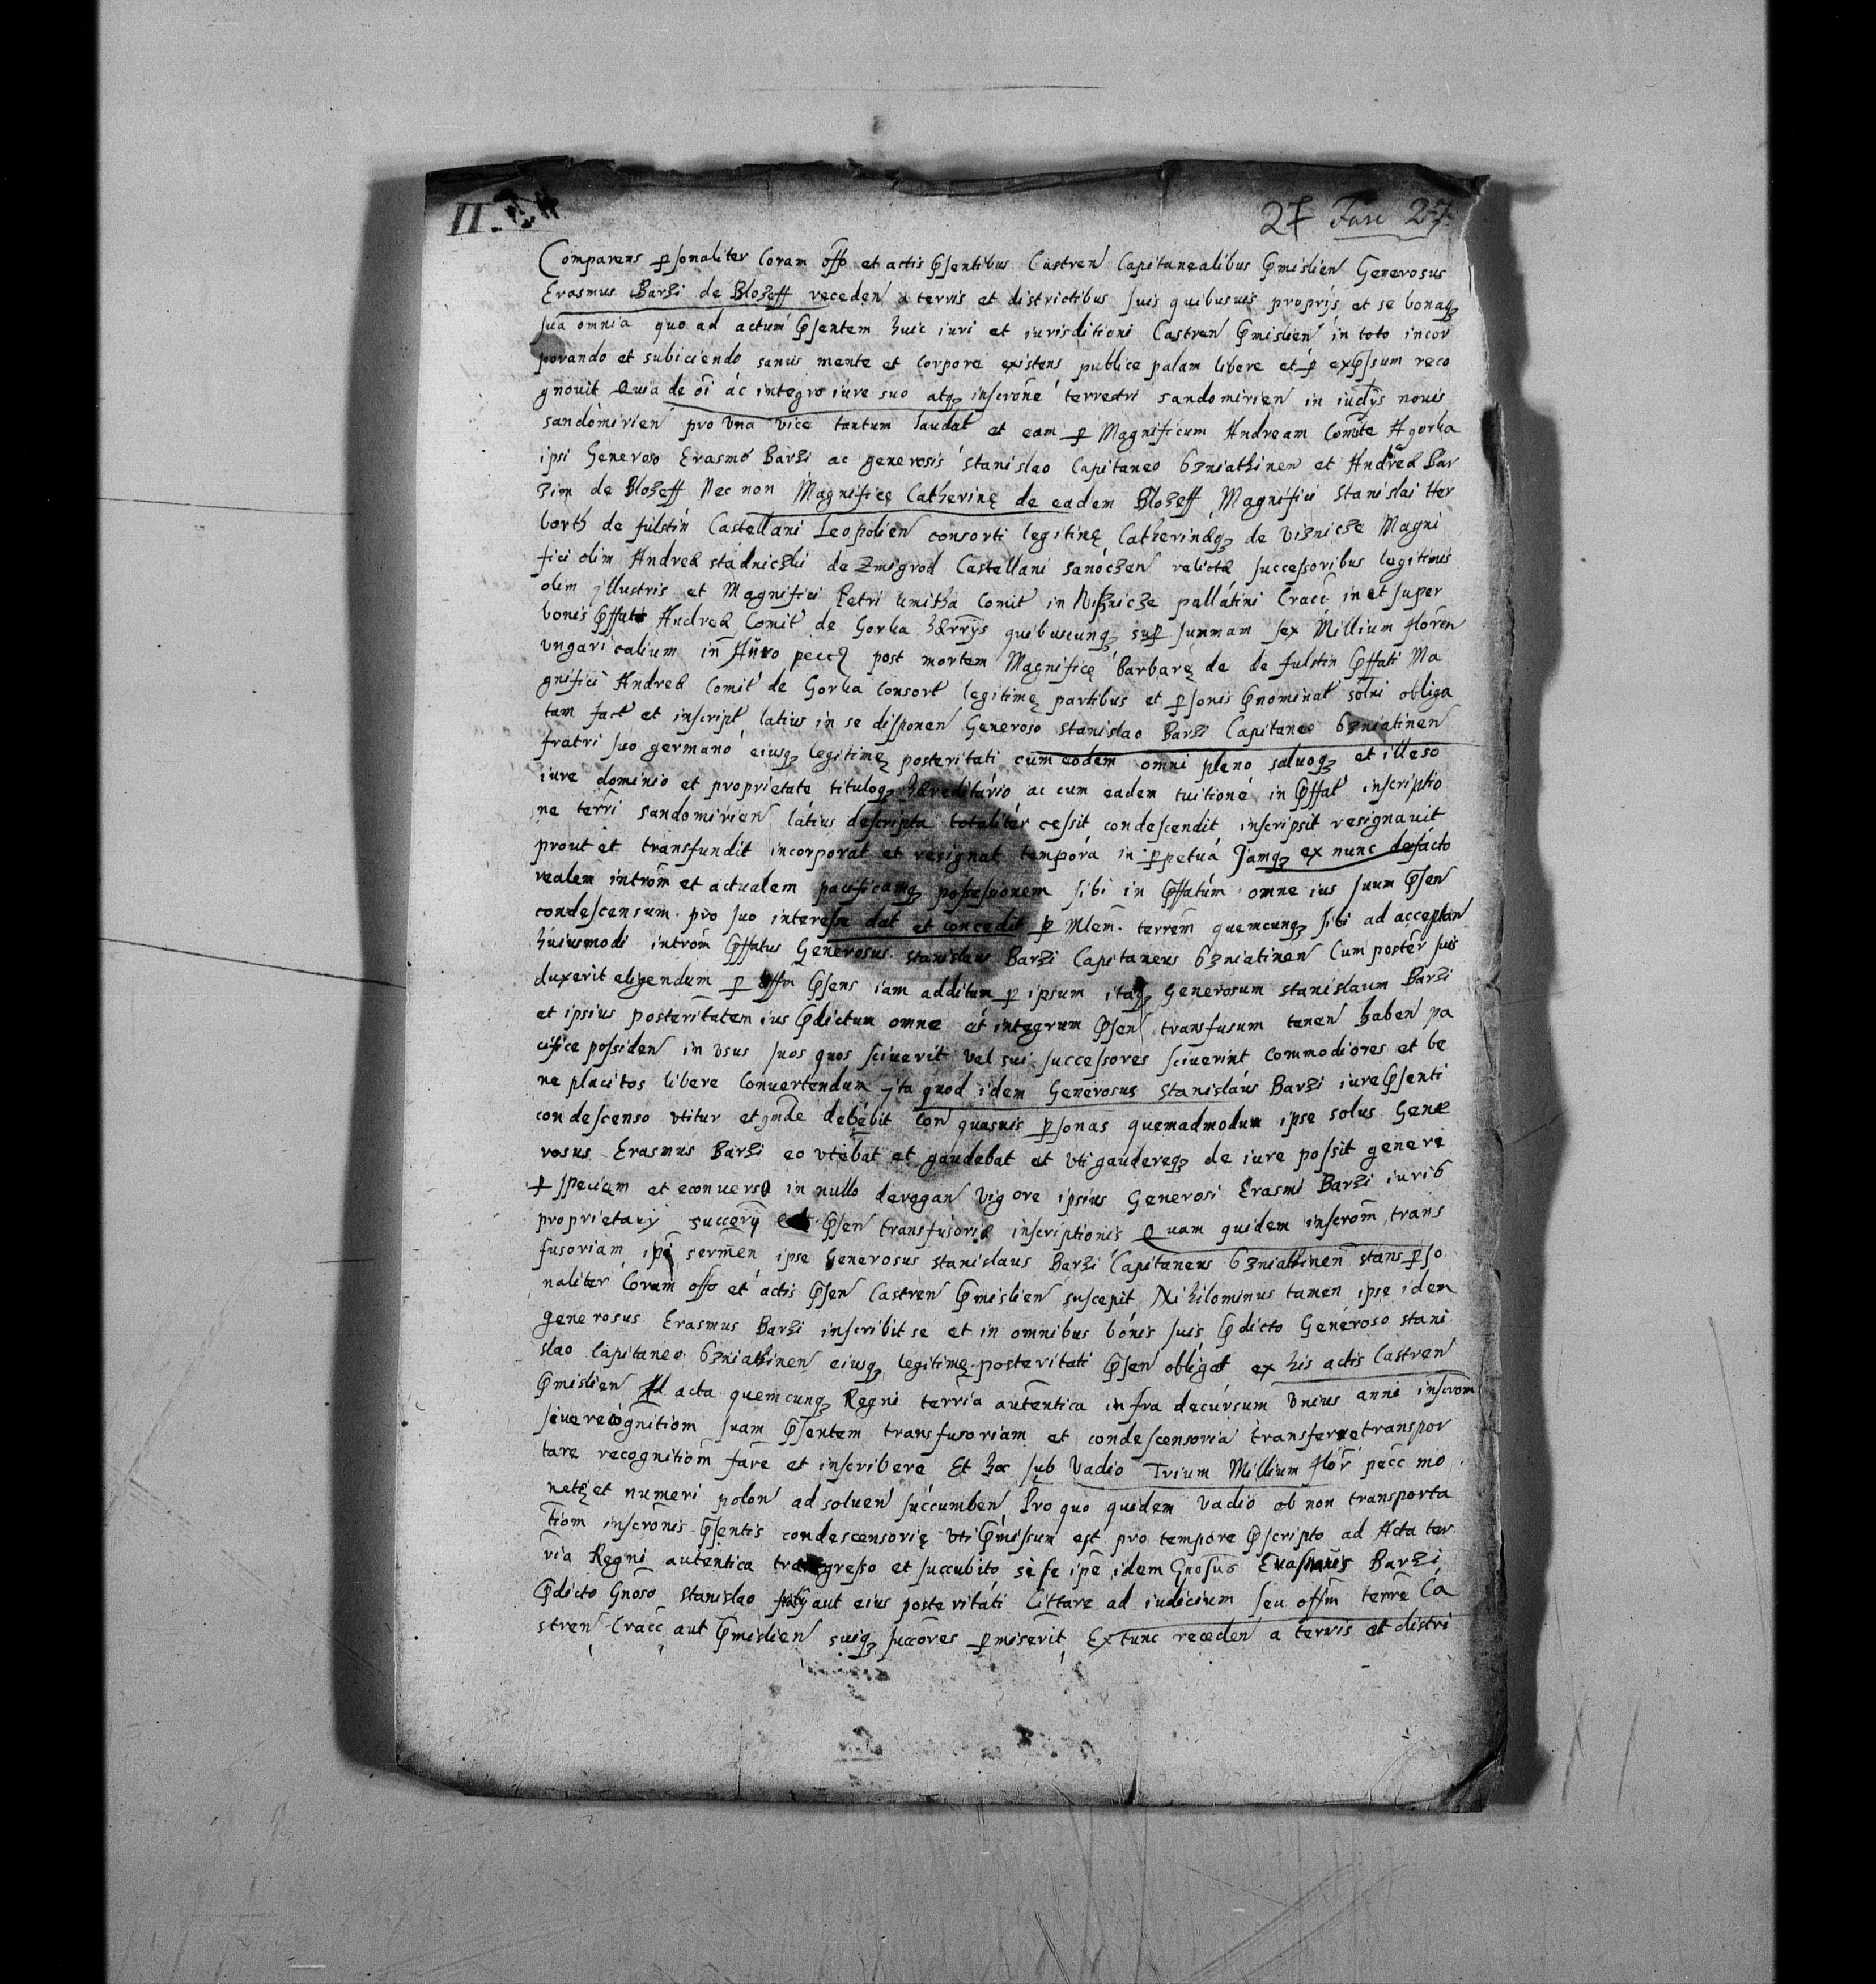 II.
27 Fasc 27.
Comparens p̱sonaliter Coram offo et actis p̄sentibus Castren Capitanealibus p̄mislien Generosus
Erasmus Barzi de Blozeff receden a terris et districtibus suis quibusuis proprijs et se bonaqȝ
sua omnia quo ad actum p̄sentem huic iuri et iurisditioni Castren p̄mislien in toto incor
porando et subiciendo sanus mente et corpore existens publice palam libere et p̱ exp̄sum reco
gnouit Quia de oī ac integro iure suo atqȝ inscrōne terrestri sandomirien in iudijs nouis
sandomirien pro vna vice tantum laudat et eam p̱ Magnificum Andream Comite A gorka
ipsi Generoso Erasmo Barzi ac generosis Stanislao Capitaneo Gzniathinen et Andrea Bar
zim de Blozeff Nec non Magnificę Catherinę de eadem Blozeff Magnifici Stanislai Her
borth de fulstin Castellani Leopolien consorti legitimę Catherinæqȝ de Viznicze Magni
fici olim Andreæ stadniczki de Zmigrod Castellani sanoczen relictæ successoribus legitimis
olim jllustris et Magnifici Petri kmitha Comit in Viznicze pallatini Cracc in et super
bonis p̄ffati Andreæ Comit de Gorka hærrijs quibuscunqȝ sup̱ summam sex Millium floren
vngaricalium in Auro post mortem Magnificę Barbarę de de fulstin p̄ffati Ma
gnifici Andreæ Comit de Gorka Consort legitimę partibus et p̱sonis p̄nominat solui obliga
tam fact et inscript latius in se disponen Generoso Stanislao Barzi Capitaneo Gzniatinen
fratri suo germano eiusqȝ legitimę posteritati cum eodem omni pleno saluoqȝ et illeso
iure dominio et proprietate tituloqȝ hæreditario ac cum eadem tuitione in p̄ffat inscriptio
ne terri sandomirien latius descripta totaliter cessit condescendit inscripsit resignauit
prout et transfundit incorporat et resignat tempora in p̱petua Jamqȝ ex nunc defacto
realem introm et actualem pacificamqȝ possessionem sibi in p̄ffatum omne ius suum p̄sen
condescensum pro suo interesse dat et concedit p̱ Mlem terrem quemcunqȝ sibi ad acceptan
huiusmodi introm p̄ffatus Generosus Stanislaus Barzi Capitaneus Gzniatinen Cum poster suis
duxerit eligendum p̱ offm p̄sens iam additum p̱ ipsum itaqȝ Generosum stanislaum Barzi
et ipsius posteritatem ius p̄dictum omne et integrum p̄sen transfusum tenen haben pa
cifice possiden in vsus suos quos sciuerit vel sui successores sciuerint commodiores et be
ne placitos libere Conuertendum jta quod idem Generosus Stanislaus Barzi iure p̄senti
condescenso vtitur et debebit con quasuis p̱sonas quemadmodum ipse solus Gene
rosus Erasmus Barzi eo vtebat et gaudebat et vti gaudereqȝ de iure possit genere
p̱ speciem et econuerso in nullo derogan vigore ipsius Generosi Erasmi Barzi iuris
proprietarij p̄sen transfusoriæ inscriptionis Quam quidem inscrom trans
fusoriam ipse Generosus stanislaus Barzi Capitaneus Gzniathinen stans p̱so
naliter Coram offo et actis p̄sen Castren p̄mislien suscepit Nihilominus tamen ipse idem
generosus Erasmus Barzi inscribit se et in omnibus bonis suis p̄dicto Generoso stani
slao Capitaneo Gzniathinen eiusqȝ legitimę posteritati p̄sen obligat ex his actis Castren
p̄mislien Ad acta quemcunqȝ Regni terria autentica infra decursum vnius anni inscrom
siue recognitiom suam p̄sentem transfusoriam et condescensoria transferre transpor
tare recognitiom fare et inscribere Et hoc sub Vadio Trium Millium flor pecc mo
netę et numeri polon ad soluen succumben Pro quo quidem vadio ob non transporta
tiom inscronis p̄sentis condescensorię vti p̄missum est pro tempore p̄scripto ad Acta ter
ria Regni autentica transgresso et succubito sese ipē idem Gnosus Erasmus Barzi
p̄dicto Gnoso stanislao aut eius posteritati Cittare ad iudicium seu offm terre Ca
stren Cracc aut p̄mislien suiqȝ succores p̱miserit Extunc receden a terris et distri